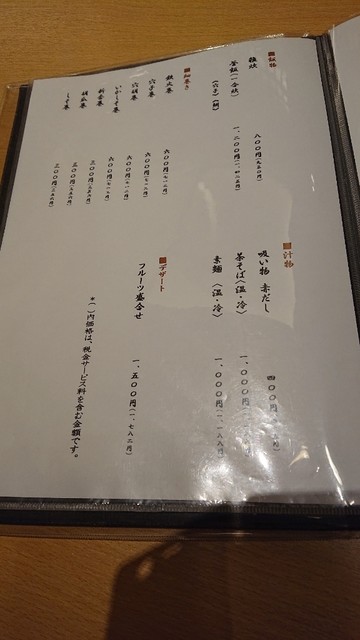 ■飯物
雑炊 八〇〇円(九五〇円)
釜飯(一合炊) 一、二〇〇円(一、四二五円)
(穴子)(鯛)
■細巻き
鉄火巻 六〇〇円(七一二円)
穴子巻 六〇〇円(七一二円)
穴胡巻 六〇〇円(七一二円)
いかしそ巻 六〇〇円(七一二円)
新香巻 三〇〇円(三五六円)
胡瓜巻 三〇〇円(三五六円)
しそ巻 三〇〇円(三五六円)
■汁物
吸い物 赤だし 四〇〇円
茶そば〈温・冷〉 一、〇〇〇円
素麺 〈温・冷〉 一、〇〇〇円(一、一八八円)
■デザート
フルーツ盛合せ 一、五〇〇円(一、七八二円)
*( )内価格は、税金サービス料を含む金額です。